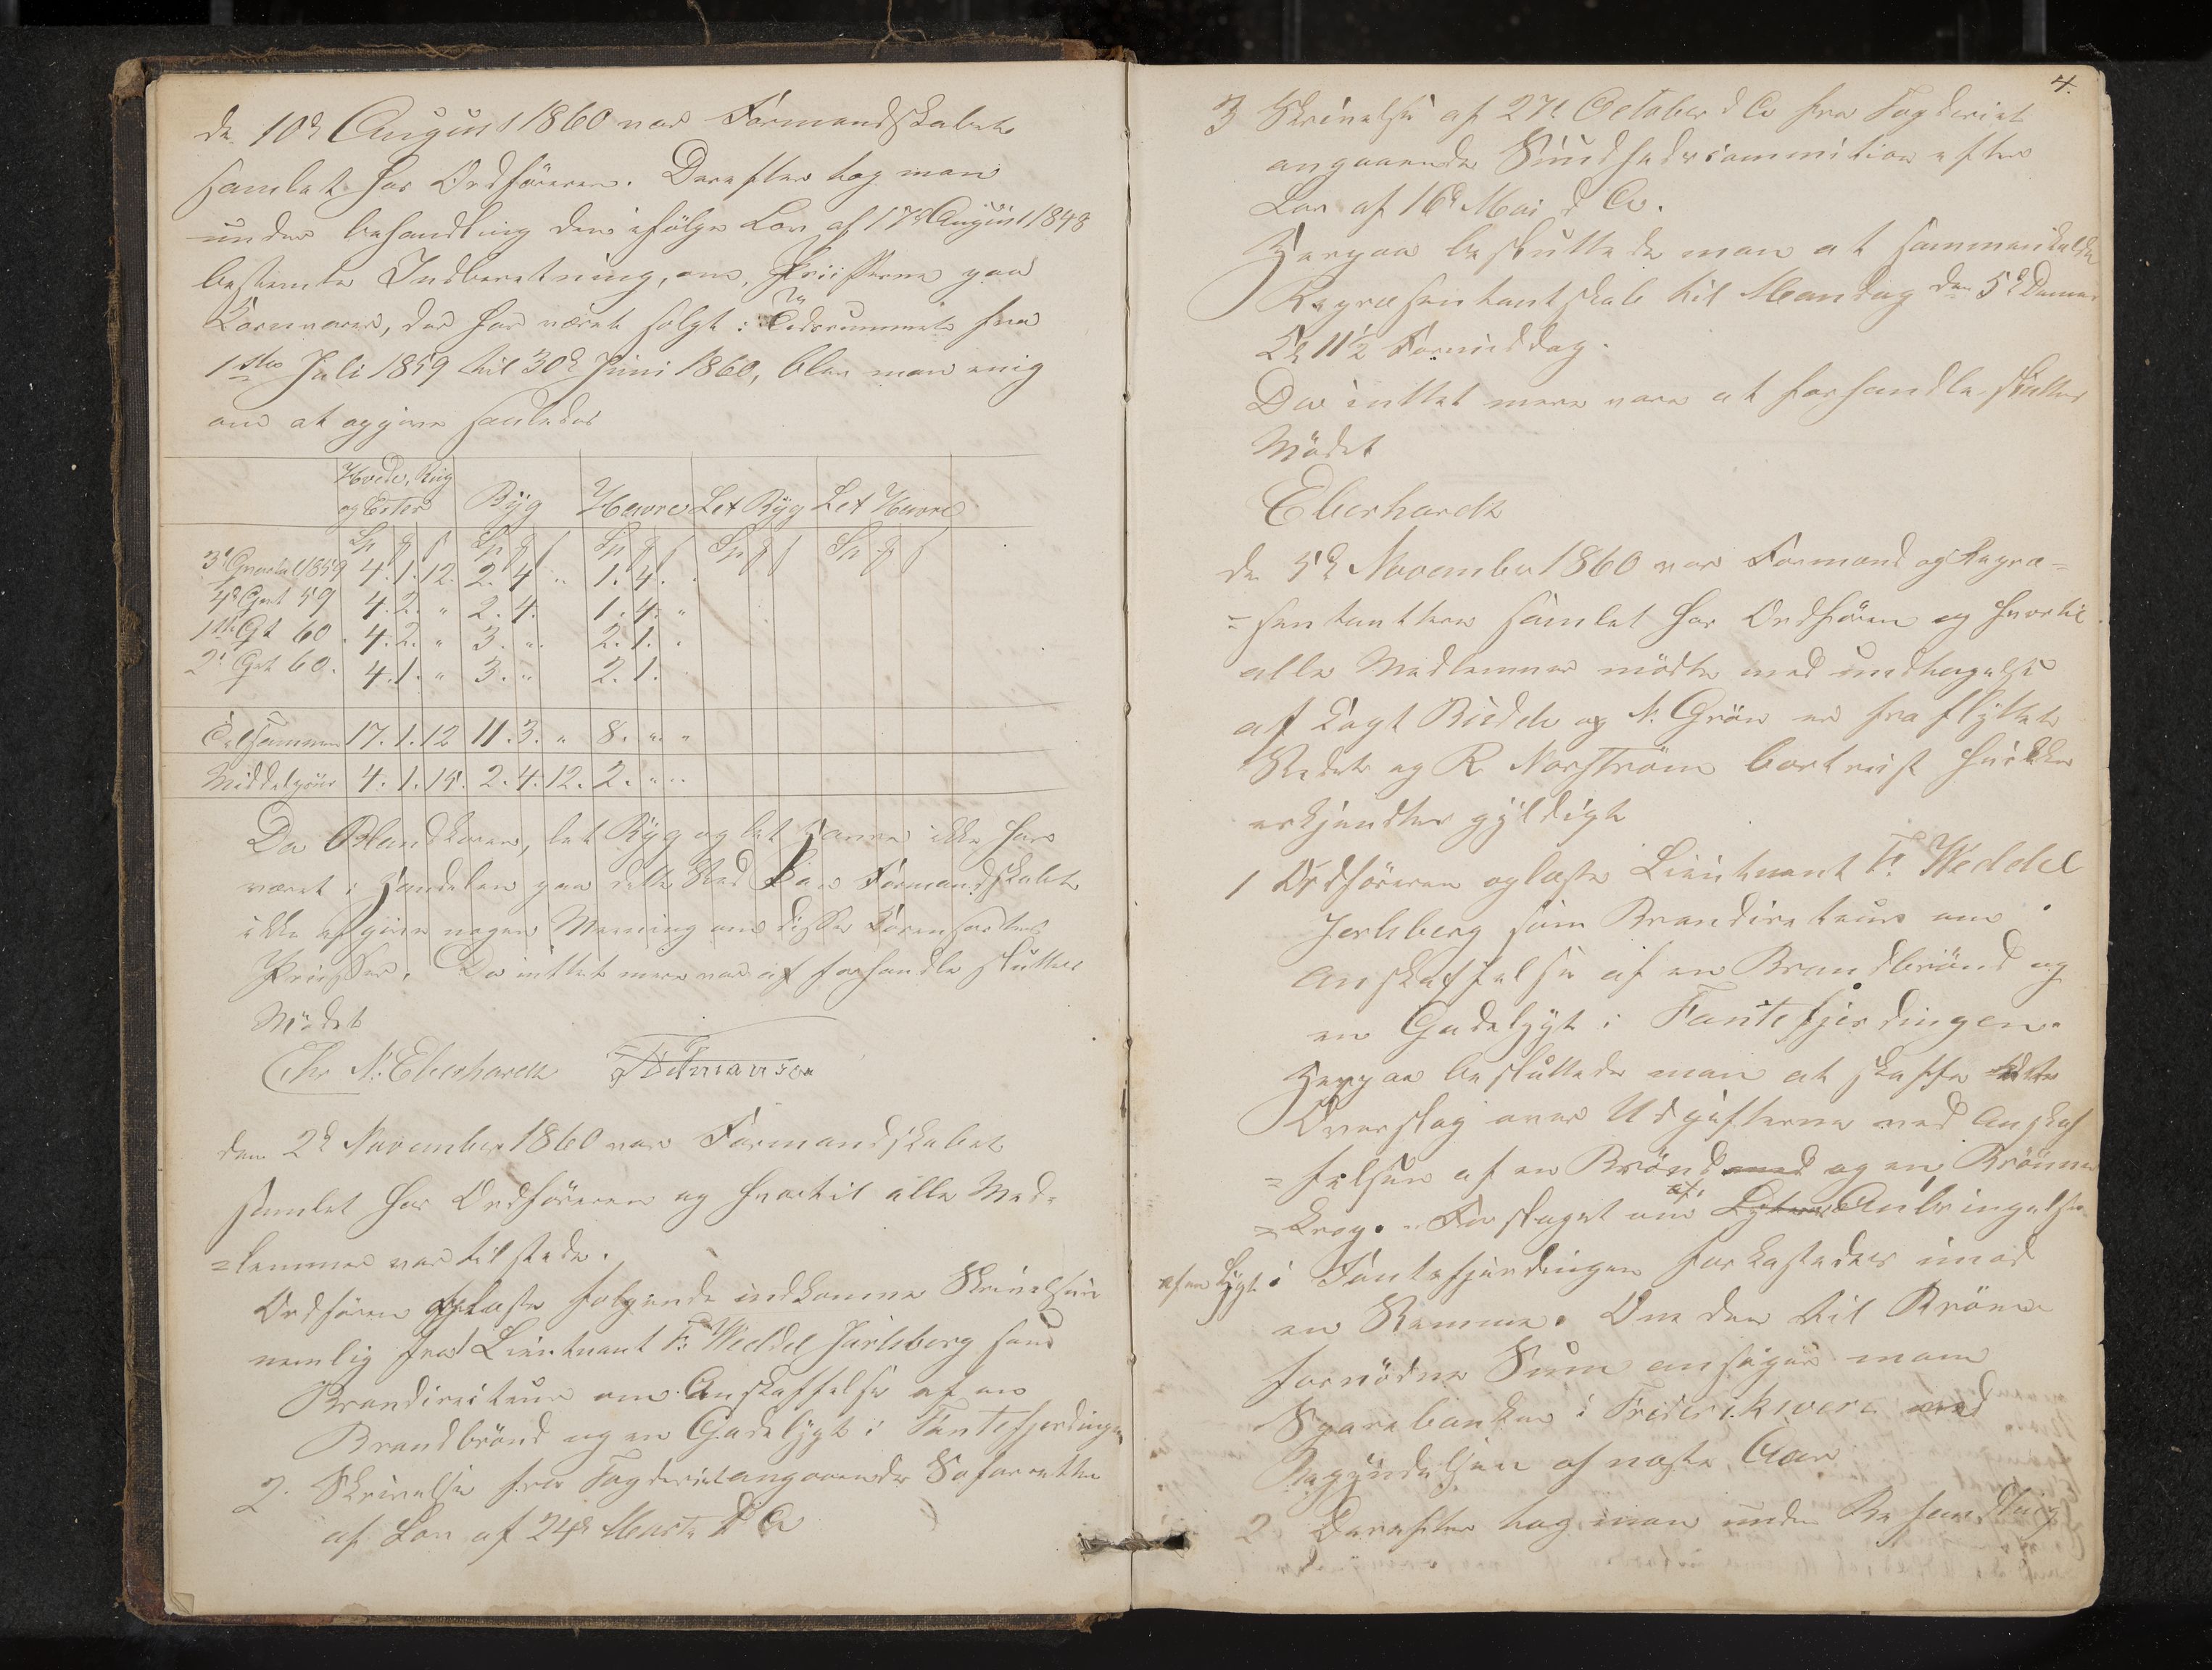 de 10d August 1860 var Formandskabet
samlet hos Ordføreren. Derefter tog man
under behandling den ifølge Lov af 17d August 1848
bestemte Indberetning, om, Priisserne paa
Kornvarer, der har været solgt i Tidsrummet fra
1ste Juli 1859 til 30d Juni 1860, blev man enig
om at opgive saaledes
Hvede, Rug
og Erter Byg Havre Let Byg Let Havre
Sp ß Sp ß Sp ß Sp ß Sp ß
3d Qvartal 1859 4. 1. 12. 2. 4 " 1. 4.
4d Qart 59 4. 2. " 2. 4. 1. 4. "
1ste Qt 60. 4. 2. " 3. ". 2. 1. "
2d Qrt 60. 4. 1. " 3. " 2. 1.
Tilsammen 17. 1. 12 11. 3. " 8. " "
Middelpriis 4. 1. 15. 2. 4. 12. 2. " "
Da Blandkorn, let Byg og let Havre ikke har
været i Handelen paa dette Sted kan Formandskabet
ikke afgive nogen Mening om disse Kornsorters
Priisser. Da intet mere var at forhandle sluttes
Mödet
Chr N. Eberhardt
den 2d November 1860 var Formandskabet
samlet hos Ordføreren og hvortil alle Med=
=lemmer var tilstede.
Ordføren oplæste følgende indkomne Skrivelser
nemlig fra 1 Lieutnant F. Weddel Jarlsberg som
Branddirecteur om Anskaffelse af en
Brandbrönd og en Gadelygt i Fantefjerdingen
2. Skrivelse fra Fogderiet angaaende Søforrette
af Lov af 24d Marts d A
4.
3 Skrivelse af 27d October d A fra Fogderiet
angaaende Sundhedscommition efter
Lov af 16d Mai d A.
Herpaa besluttede man at sammenkalde
Repræsentantskab til Mandag den 5d Dennes
Kl 11½ Formiddag.
Da inttet mere vare at forhandle sluttes
Mödet
Eberhardt
de 5d November 1860 var Formand og Repræ=
=sentantter samlet hos Ordføren og hvortil
alle Medlemmer mödte med undtagelse
af Kapt Budde og N. Grön er fraflyttet
Stedet og R Norström bortreist hvilket
erkjendtes gyldigt
1 Ordføreren oplæste Lieutnant F. Weddel
Jerlsberg som Brandirecteurs om
Anskaffelse af en Brandbrönd og
en Gadelygt i Fantefjerdingen.
Herpaa besluttede man at skaffe
Overslag over Udgifterne ved Anskaf
=felsen af en Brönd med og en Brönne
=krog. Forslaget om Anbringelse
af en Lygt i Fantefjerdingen forkastedes imod
en Stemme. Om den til Brönne
fornödne Sum ansöger man
Sparebanken i Frideriksværn ved
Begyndelsen af næste Aar
2 Derefter tog man under Behandling